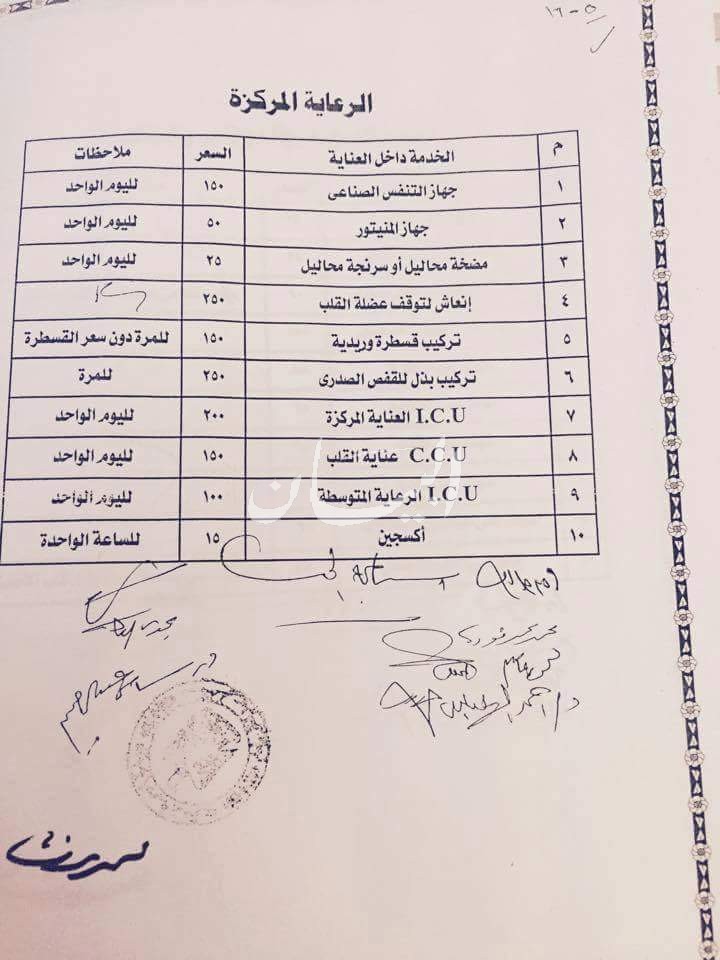 ١٦-٥
الرعاية المركزة
م الخدمة داخل العناية السعر ملاحظات
١ جهاز التنفس الصناعى ١٥٠ لليوم الواحد
٢ جهاز المنيتور ٥٠ لليوم الواحد
٣ مضخة محاليل أو سرنجة محاليل ٢٥ لليوم الواحد
٤ إنعاش لتوقف عضلة القلب ٢٥٠
٥ تركيب قسطرة وريدية ١٥٠ للمرة دون سعر القسطرة
٦ تركيب بذل للقفص الصدرى ٢٥٠ للمرة
٧ I.C.U العناية المركزة ٢٠٠ لليوم الواحد
٨ C.C.U عناية القلب ١٥٠ لليوم الواحد
٩ I.C.U الرعاية المتوسطة ١٠٠ لليوم الواحد
١٠ أكسجين ١٥ للساعة الواحدة